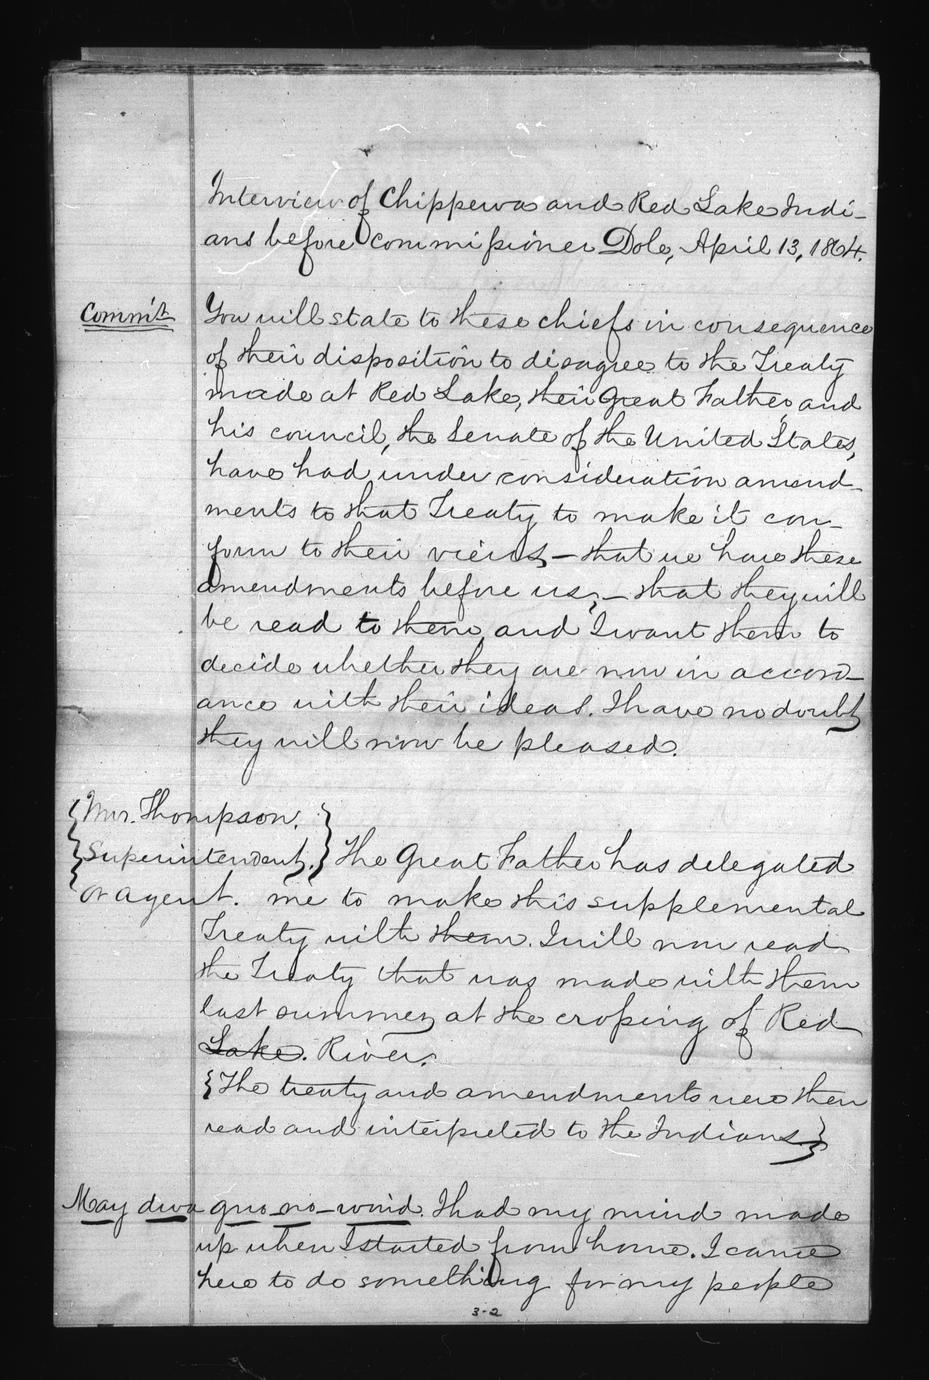 Interview of Chippewa and Red Lake Indi-
ans before commissioner Dole, April 13, 1864.
Commr You will state to these chiefs in consequence
of their disposition to disagree to the Treaty
made at Red Lake, their Great Father and
his council, the Senate of the United States,
have had under consideration amend-
ments to that Treaty to make it con-
form to their views – that we have these
amendments before us, – that they will
be read to them, and I want them to
decide whether they are now in accord-
ance with their ideas. I have no doubt
they will now be pleased.
{Mr. Thompson.
{Superintendent,} The Great Father has delegated
or agent. me to make this supplemental
Treaty with them. I will now read
the Treaty that was made with them
last summer, at the crossing of Red
Lake. River.
{The treaty and amendments were then
read and interpreted to the Indians}
May dwa gwo no-wind. I had my mind made
up when I started from home. I came
here to do something for my people
3-2